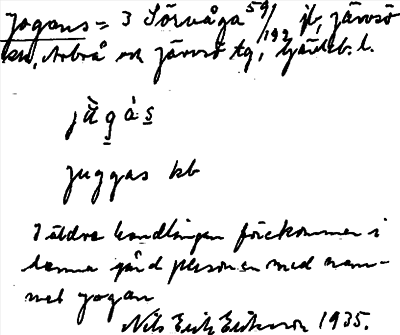 Jogans = 3 Sörvåga 59/192 jb, Järvsö
sn, Arbrå ock Järvsö tg,
jàgàs
juggas kb
I äldre handlingar förekommer i
denna gård personen med nam-
net Jogan
Nils Erik Eriksson 1935.